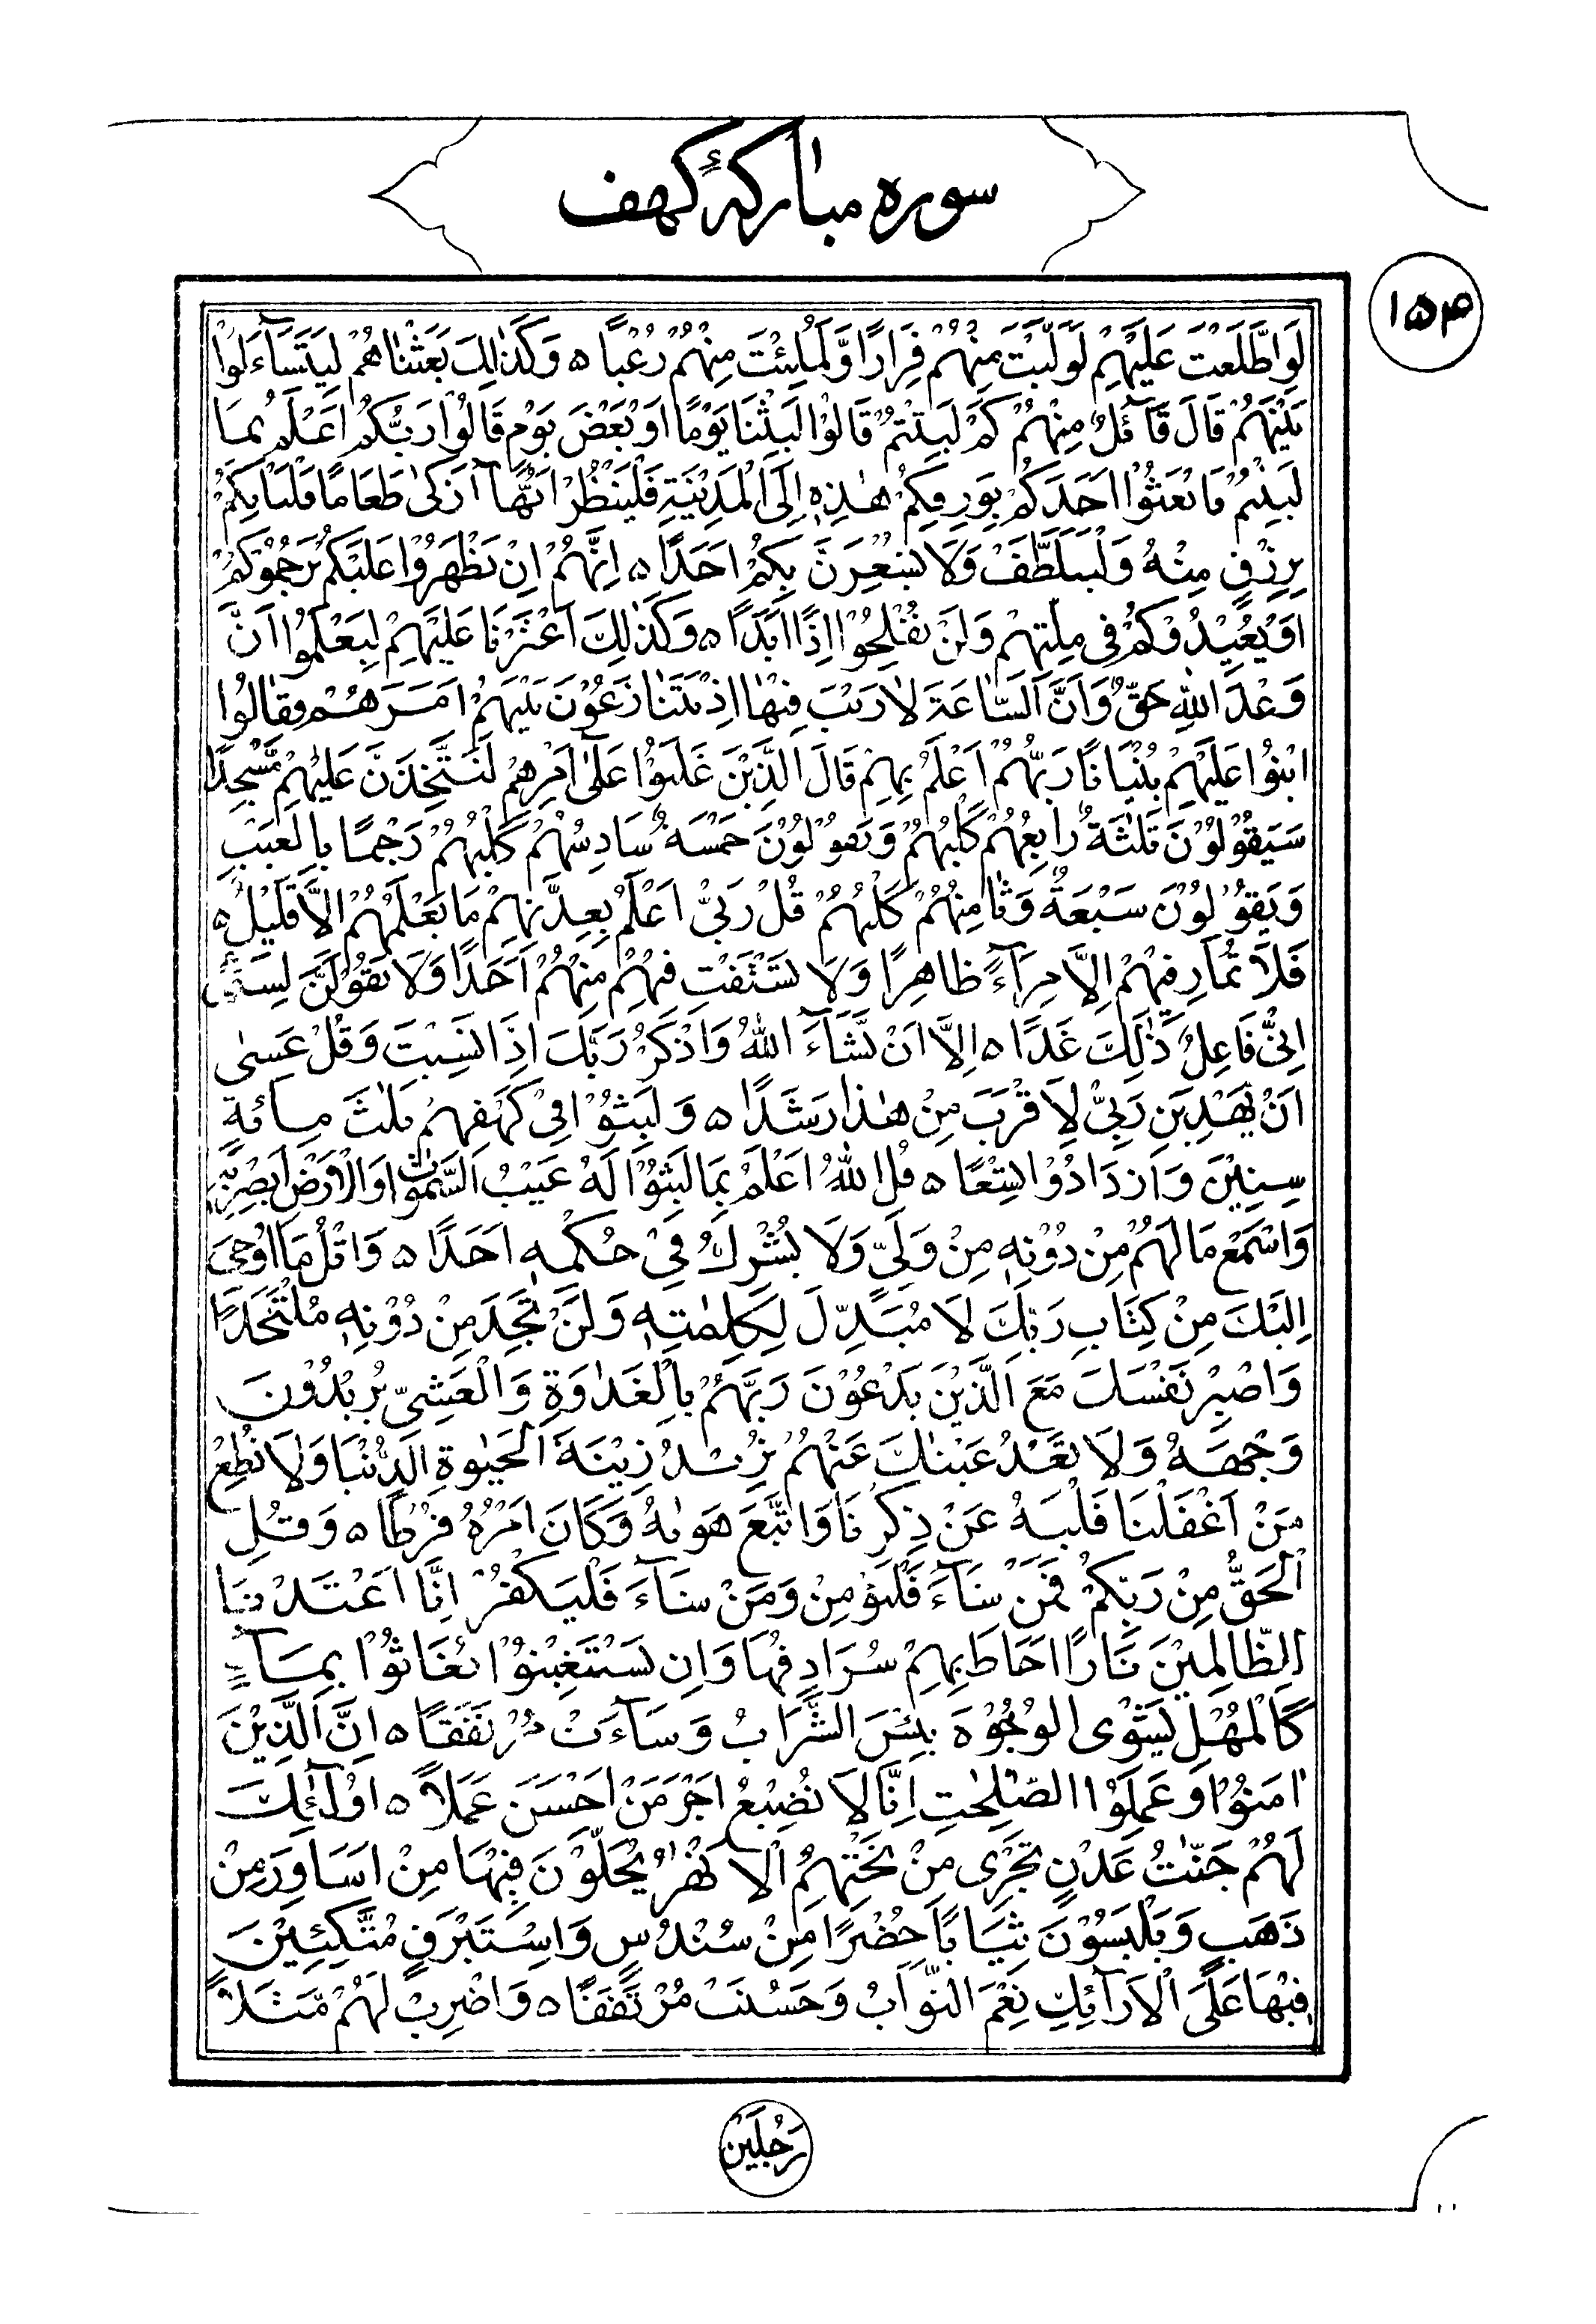 سوره مبارکهٔ کهف
۱۵۴
لَوِ اطَّلَعْتَ عَلَيْهِمْ لَوَلَّيْتَ مِنْهُمْ فِرَارًا وَّلَمُلِئْتَ مِنْهُمْ رُعْبًا ۵ وَكَذٰلِكَ بَعَثْنٰاهُمْ لِيَتَسَآءَلُوْا
بَيْنَهُمْ قَالَ قَآئِلٌ مِنْهُمْ كَمْ لَبِثْتُمْ قَالُوْا لَبِثْنَا يَوْمًا اَوْ بَعْضَ يَوْمٍ قَالُوْا رَبُّكُمْ اَعْلَمُ بِمَا
لَبِثْتُمْ فَابْعَثُوْا اَحَدَكُمْ بِوَرِقِكُمْ هٰذِهٖ اِلَى الْمَدِيْنَةِ فَلْيَنْظُرْ اَيُّهَآ اَزْكٰى طَعَامًا فَلْيَأْتِكُمْ
بِرِزْقٍ مِنْهُ وَلْيَتَلَطَّفْ وَلَا يُشْعِرَنَّ بِكُمْ اَحَدًا ۵ اِنَّهُمْ اِنْ يَظْهَرُوْا عَلَيْكُمْ يَرْجُمُوْكُمْ
اَوْ يُعِيْدُوْكُمْ فِى مِلَّتِهِمْ وَلَنْ تُفْلِحُوْا اِذًا اَبَدًا ۵ وَكَذٰلِكَ اَعْثَرْنَا عَلَيْهِمْ لِيَعْلَمُوْا اَنَّ
وَعْدَ اللّٰهِ حَقٌّ وَاَنَّ السّٰاعَةَ لٰا رَيْبَ فِيْهٰا اِذْ يَتَنٰازَعُوْنَ بَيْنَهُمْ اَمْرَهُمْ فَقٰالُوا
ابْنُوْا عَلَيْهِمْ بُنْيَانًا رَبُّهُمْ اَعْلَمُ بِهِمْ قَالَ الَّذِيْنَ غَلَبُوْا عَلٰٓى اَمْرِهِمْ لَنَتَّخِذَنَّ عَلَيْهِمْ مَّسْجِدًا
سَيَقُوْلُوْنَ ثَلٰثَةٌ رٰابِعُهُمْ كَلْبُهُمْ وَيَقُوْلُوْنَ خَمْسَةٌ سَادِسُهُمْ كَلْبُهُمْ رَجْمًا بِالْغَيْبِ
وَيَقُوْلُوْنَ سَبْعَةٌ وَثٰامِنُهُمْ كَلْبُهُمْ قُلْ رَبِّىْٓ اَعْلَمُ بِعِدَّتِهِمْ مَا يَعْلَمُهُمْ اِلَّا قَلِيْلٌ ۵
فَلَا تُمَارِ فِيْهِمْ اِلَّا مِرَآءً ظَاهِرًا وَلَا تَسْتَفْتِ فِيْهِمْ مِنْهُمْ اَحَدًا وَلَا تَقُوْلَنَّ لِشَىْءٍ
اِنِّىْ فَاعِلٌ ذٰلِكَ غَدًا ۵ اِلَّا اَنْ يَّشَآءَ اللّٰهُ وَاذْكُرْ رَبَّكَ اِذَا نَسِيْتَ وَقُلْ عَسٰى
اَنْ يَّهْدِيَنِ رَبِّىْ لِاَقْرَبَ مِنْ هٰذٰا رَشَدًا ۵ وَلَبِثُوْا فِىْ كَهْفِهِمْ ثَلٰثَ مِائَةٍ
سِنِيْنَ وَازْدَادُوْا تِسْعًا ۵ قُلِ اللّٰهُ اَعْلَمُ بِمَا لَبِثُوْا لَهُ غَيْبُ السَّمٰوٰاتِ وَالْاَرْضِ اَبْصِرْ بِهٖ
وَاَسْمِعْ مَا لَهُمْ مِنْ دُوْنِهٖ مِنْ وَلِىٍّ وَلَا يُشْرِكُ فِىْ حُكْمِهٖ اَحَدًا ۵ وَاتْلُ مَا اُوْحِىَ
اِلَيْكَ مِنْ كِتَابِ رَبِّكَ لَا مُبَدِّلَ لِكَلِمٰتِهٖ وَلَنْ تَجِدَ مِنْ دُوْنِهٖ مُلْتَحَدًا
وَاصْبِرْ نَفْسَكَ مَعَ الَّذِيْنَ يَدْعُوْنَ رَبَّهُمْ بِالْغَدٰاوةِ وَالْعَشِىِّ يُرِيْدُوْنَ
وَجْهَهُ وَلَا تَعْدُ عَيْنٰاكَ عَنْهُمْ تُرِيْدُ زِيْنَةَ الْحَيٰوةِ الدُّنْيَا وَلَا تُطِعْ
مَنْ اَغْفَلْنَا قَلْبَهُ عَنْ ذِكْرِنَا وَاتَّبَعَ هَوٰىهُ وَكَانَ اَمْرُهُ فُرُطًا ۵ وَقُلِ
الْحَقُّ مِنْ رَبِّكُمْ فَمَنْ شَآءَ فَلْيُؤْمِنْ وَمَنْ شَآءَ فَلْيَكْفُرْ اِنَّا اَعْتَدْنَا
لِلظّٰالِمِيْنَ نَارًا اَحَاطَ بِهِمْ سُرَادِقُهَا وَاِنْ يَسْتَغِيْثُوْا يُغَاثُوْا بِمَآءٍ
كَالْمُهْلِ يَشْوِى الْوُجُوْهَ بِئْسَ الشَّرَابُ وَسَآءَتْ مُرْتَفَقًا ۵ اِنَّ الَّذِيْنَ
اٰمَنُوْا وَعَمِلُوا الصّٰلِحٰتِ اِنَّا لَا نُضِيْعُ اَجْرَ مَنْ اَحْسَنَ عَمَلًا ۵ اُولٰٓئِكَ
لَهُمْ جَنّٰتُ عَدْنٍ تَجْرِى مِنْ تَحْتِهِمُ الْاَنْهٰرُ يُحَلَّوْنَ فِيْهَا مِنْ اَسَاوِرَ مِنْ
ذَهَبٍ وَيَلْبَسُوْنَ ثِيَابًا خُضْرًا مِنْ سُنْدُسٍ وَاِسْتَبْرَقٍ مُتَّكِئِيْنَ
فِيْهَا عَلَى الْاَرَآئِكِ نِعْمَ الثَّوَابُ وَحَسُنَتْ مُرْتَفَقًا ۵ وَاضْرِبْ لَهُمْ مَّثَلًا
رَجُلَيْنِ